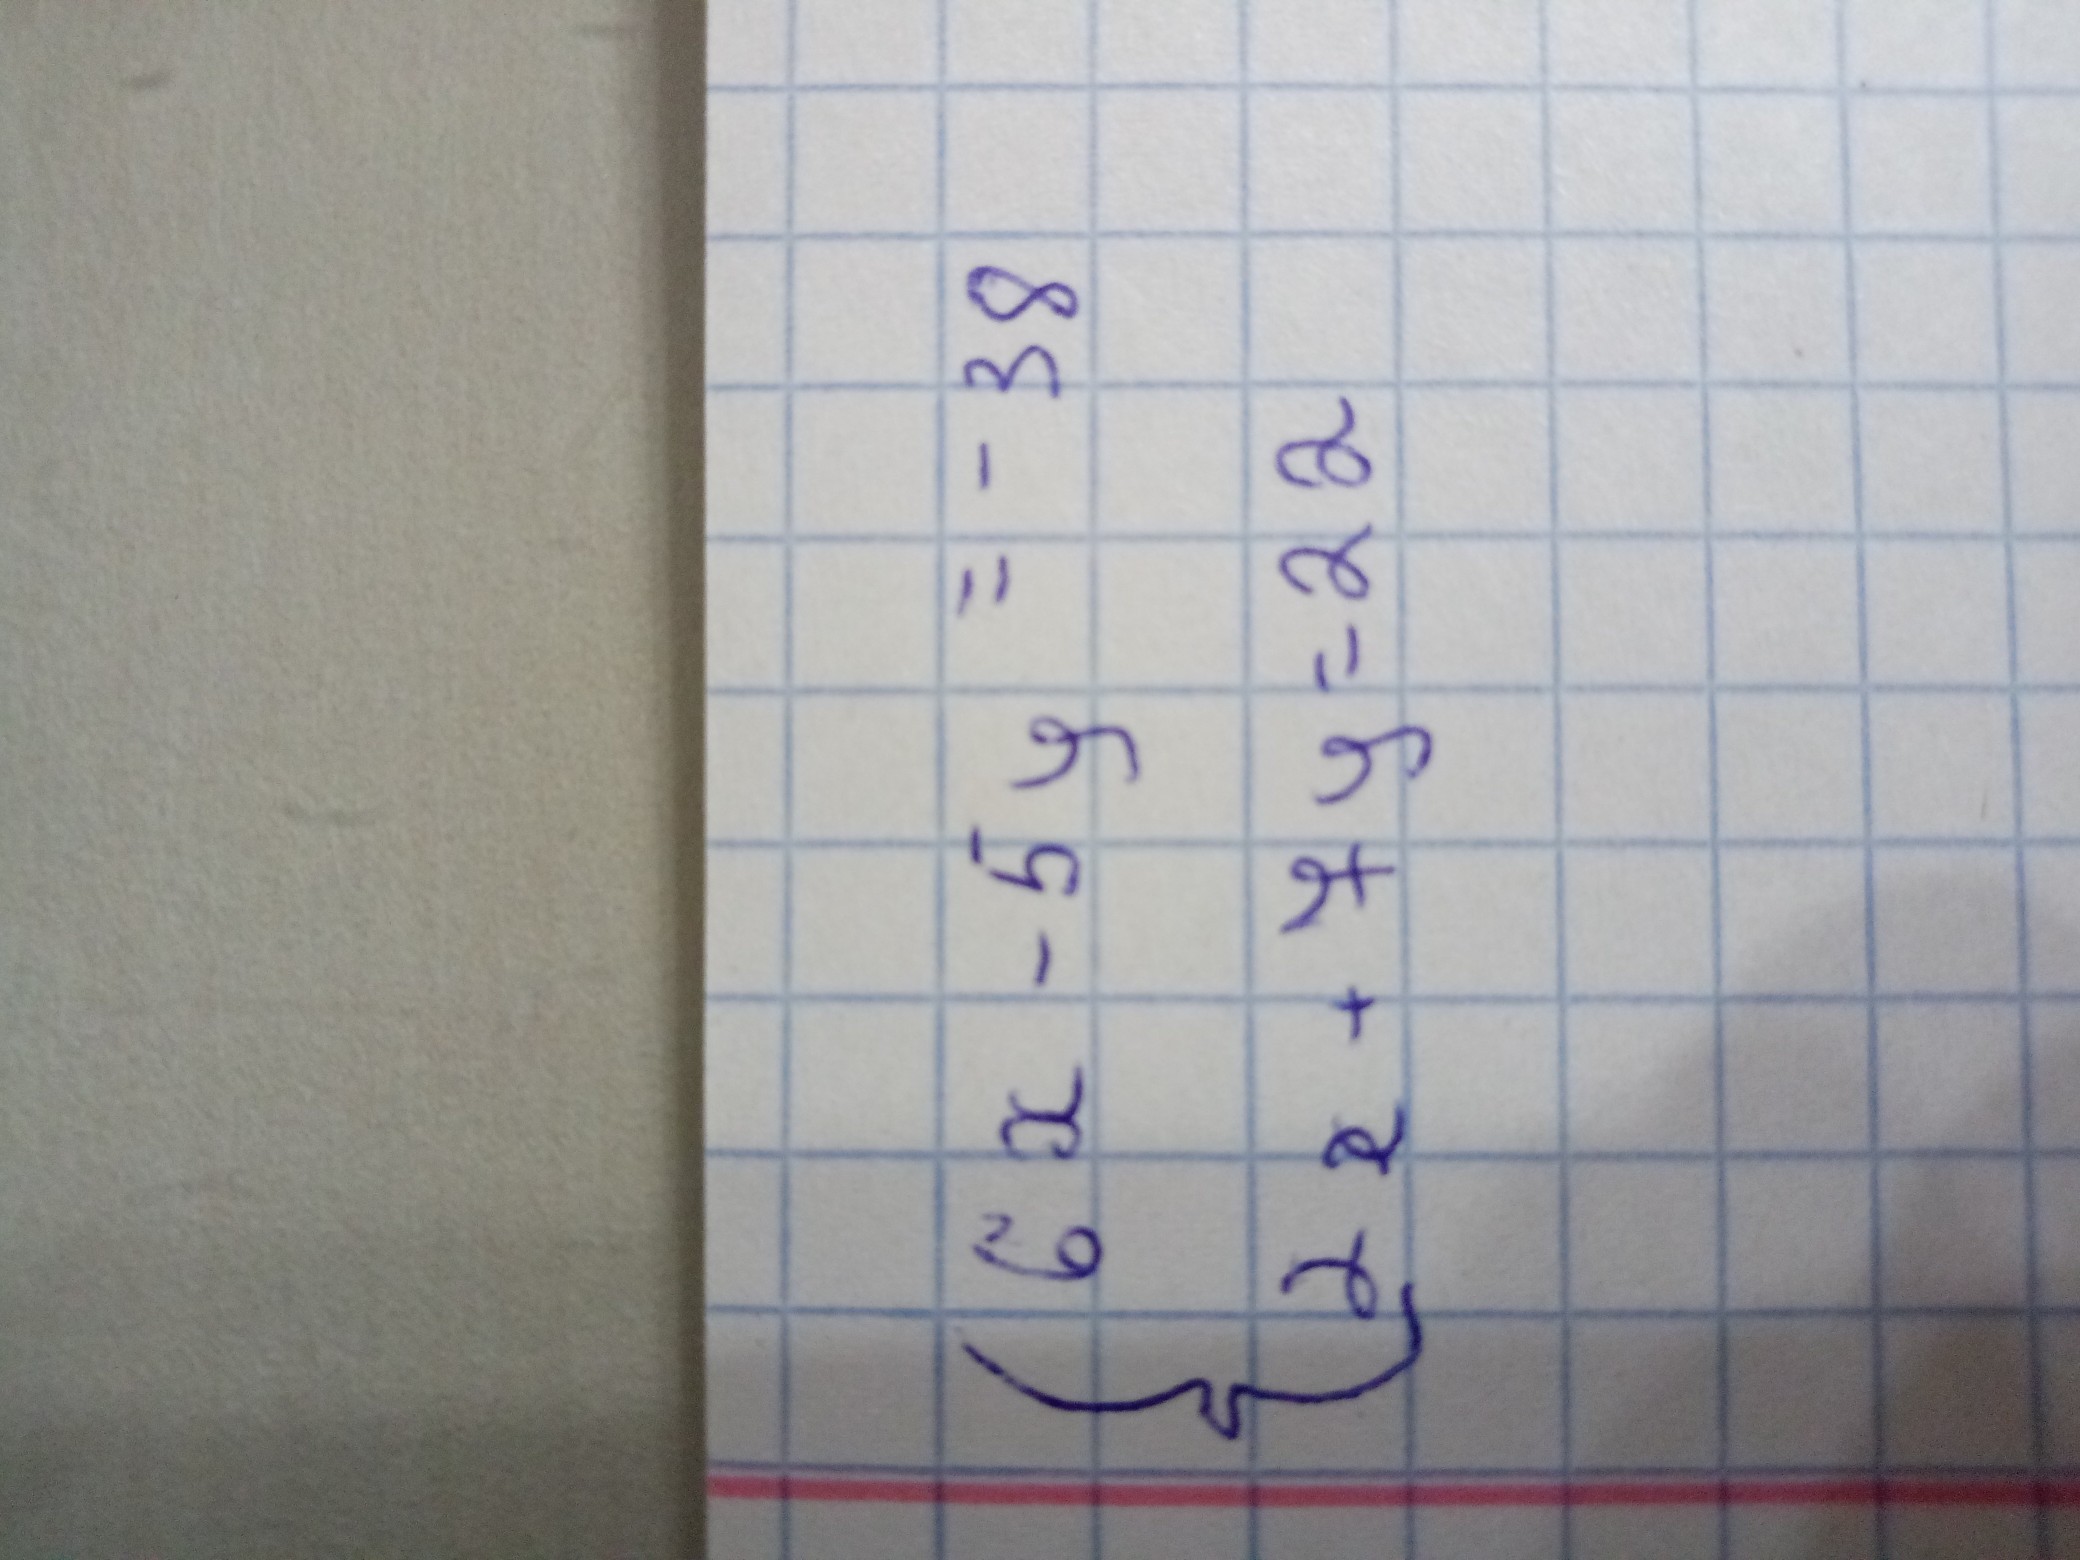 6x - 5y = - 38
2x + 7y = 22